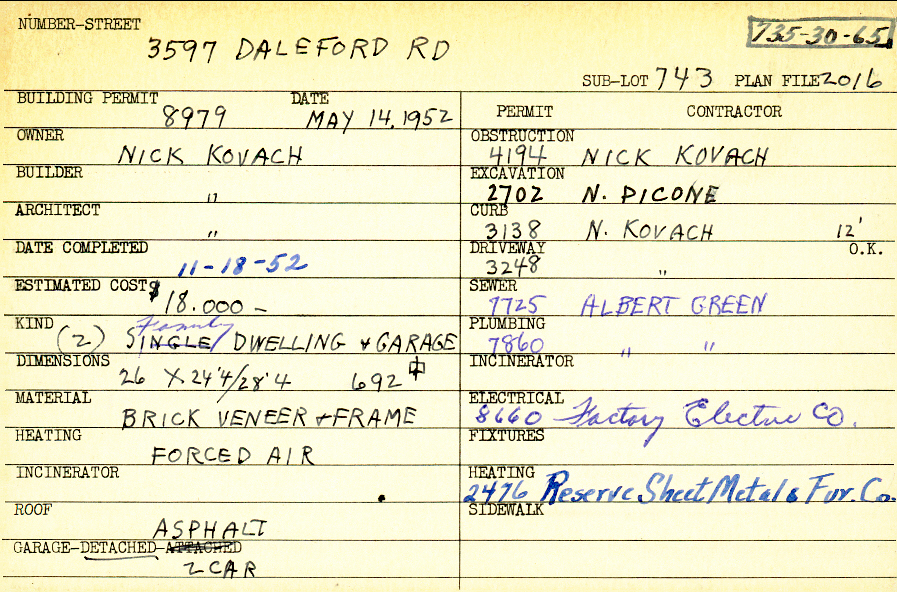 NUMBER-STREET
3597 DALEFORD RD
735-30-65
SUB-LOT 743 PLAN FILE 2016
BUILDING PERMIT DATE
8979 MAY 14, 1952
OWNER
NICK KOVACH
BUILDER
"
ARCHITECT
"
DATE COMPLETED
11-18-52
ESTIMATED COST $
18.000 –
KIND
Family
(2) SINGLE/ DWELLING + GARAGE
DIMENSIONS
26 X 24'4/28'4 692
MATERIAL
BRICK VENEER + FRAME
HEATING
FORCED AIR
INCINERATOR
ROOF
ASPHALT
GARAGE-DETACHED-ATTACHED
2 CAR
PERMIT CONTRACTOR
OBSTRUCTION
4194 NICK KOVACH
EXCAVATION
2702 N. PICONE
CURB
3138 N. KOVACH 12'
DRIVEWAY O.K.
3248 "
SEWER
7725 ALBERT GREEN
PLUMBING
7860 " "
INCINERATOR
ELECTRICAL
8660 Factory Electric Co.
FIXTURES
HEATING
2476 Reserve Sheet Metal & Fur. Co.
SIDEWALK